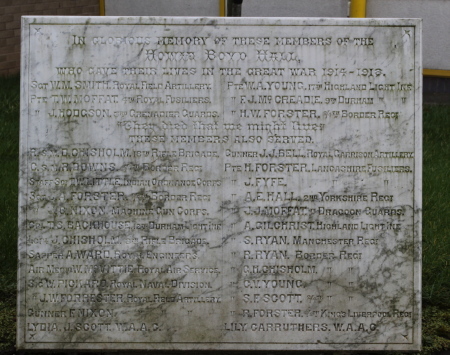 IN GLORIOUS MEMORY OF THESE MEMBERS OF THE
HOWARD BOYD HALL,
WHO GAVE THEIR LIVES IN THE GREAT WAR 1914-1919.
SGT W.M. SMITH, ROYAL FIELD ARTILLERY. PTE W.A. YOUNG, 17TH HIGHLAND LIGHT INF.
PTE T.W. MOFFAT, ROYAL FUSILIERS. " F.J. MC CREADIE, DURHAM " "
" J. HODGSON, GRENADIER GUARDS. " H.W. FORSTER, BORDER REGT
"They died that we might live"
THESE MEMBERS ALSO SERVED.
CHISHOLM, RIFLE BRIGADE. GUNNER J.J. BELL, ROYAL GARRISON ARTILLERY.
DOWNS, BORDER REGT PTE H. FORSTER, LANCASHIRE FUSILIERS.
LITTLE, INDIAN ORDNANCE CORPS. " J. FYFE, " "
FORSTER, BORDER REGT " A.E. HALL, YORKSHIRE REGT
NIXON, MACHINE GUN CORPS. " J.J. MOFFAT, DRAGOON GUARDS.
BACKHOUSE, DURHAM LIGHT INF. " A. GILCHRIST, HIGHLAND LIGHT INF.
J. CHISHOLM, RIFLE BRIGADE. " S. RYAN, MANCHESTER REGT
J.A. WARD, ROYAL ENGINEERS. " R. RYAN, BORDER REGT
AIR MECH W. ROYAL AIR SERVICE. " G.H. CHISHOLM, " "
PICKARD, ROYAL NAVAL DIVISION. " C.V. YOUNG, " "
" J.W. FORRESTER, ROYAL FIELD ARTILLERY. " S.F. SCOTT, " "
GUNNER F. NIXON, " " " R. FORSTER, KINGS LIVERPOOL REGT
LYDIA. J. SCOTT, W.A.A.C. LILY CARRUTHERS, W.A.A.C.